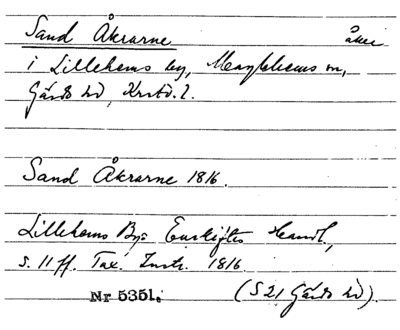 Sand Åkrarne åker
i Lillehems by, Maglehems sn,
Gärds hd, Krstd. l.
Sand Åkrarne 1816.
Lillehems Bys Enskiftes Handl.,
s. 11 ff. Tax. Instr. 1816
Nr 5351. (S 21 Gärds hd).